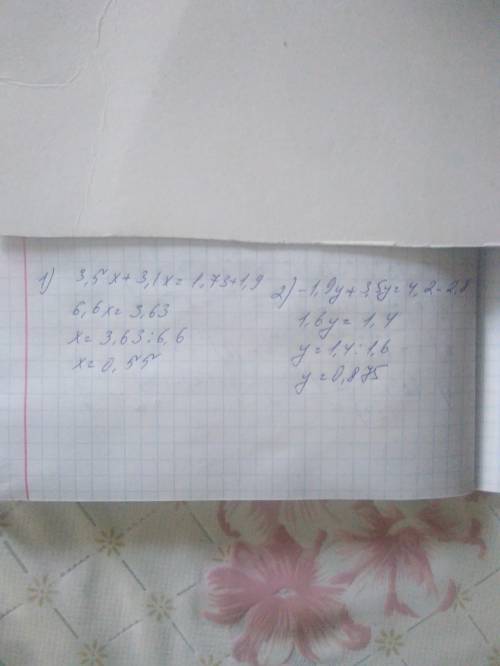 1) 3,5x+3,1x=1,73+1,9
6,6x=3,63
x=3,63:6,6
x=0,55
2) -1,9y+3,5y=4,2-2,8
1,6y=1,4
y=1,4:1,6
y=0,875